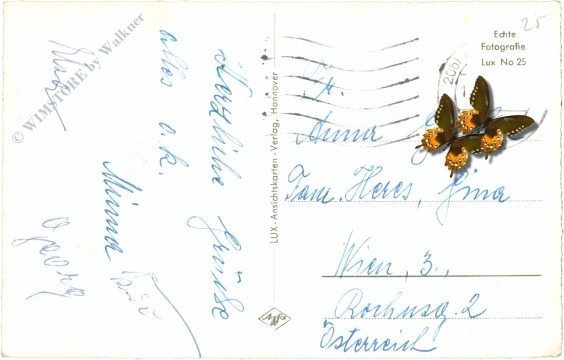 Herzliche Grüße
alles o.k.
Minna
Georg
LUX-Ansichtskarten-Verlag, Hannover
Echte
Fotografie
Lux No 25
25
Fr.
Anna
Fam. Heres, Gina
Wien, 3.,
Rochusg. 2
Österreich
© WIMSTORE by Walkner